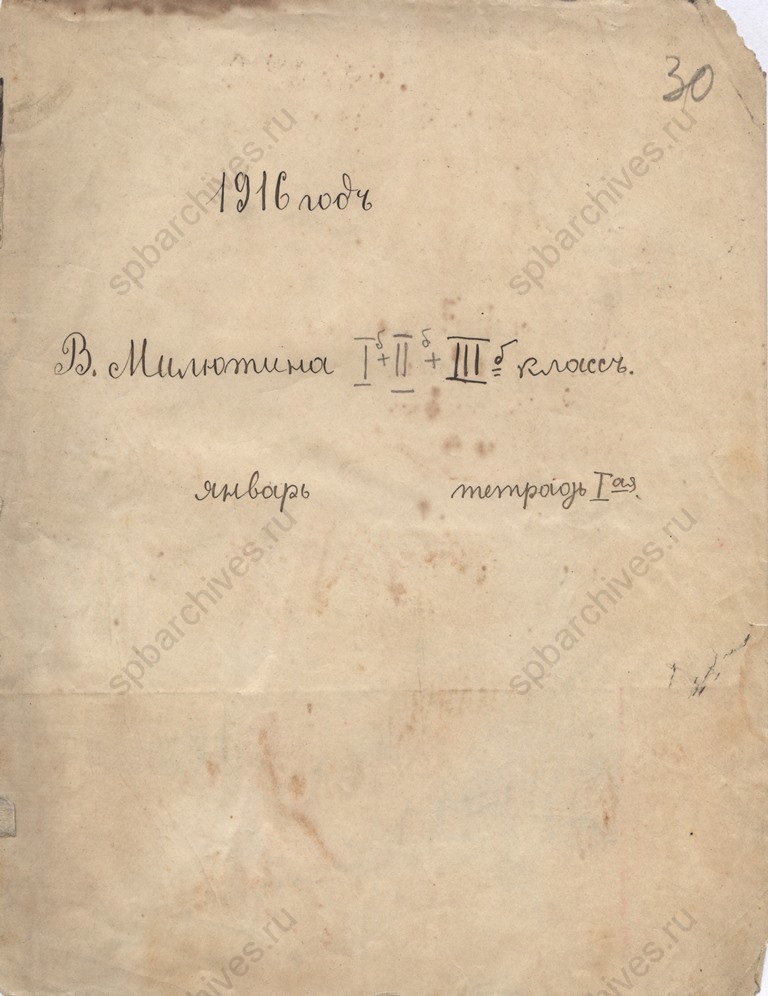 30
1916 годъ
В. Милютина I б + II б + III б классъ.
январь тетрадь I ая.
spbarchives.ru
spbarchives.ru
spbarchives.ru
spbarchives.ru
spbarchives.ru
spbarchives.ru